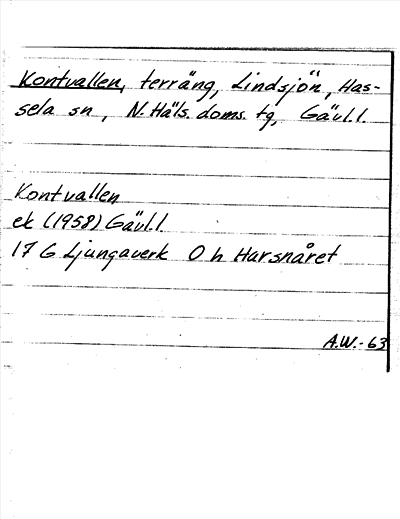 Kontvallen, terräng, Lindsjön, Has-
sela sn, N. Häls. doms. tg, Gävl.l.
Kontvallen
ek (1958) Gävl.l
17 G Ljungaverk O h Harsnåret
A.W.-63